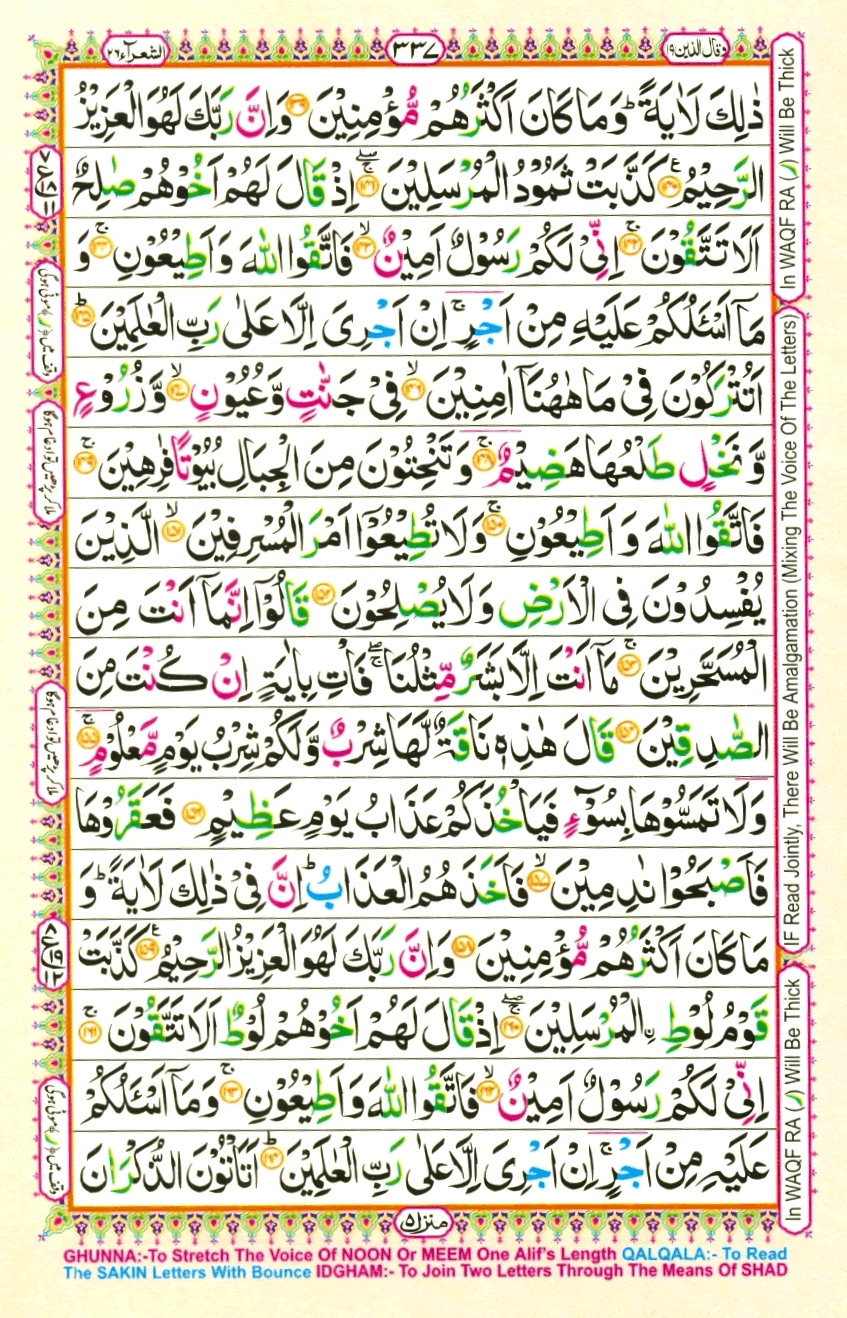 وقال الذین ۱۹
۳۳۷
الشعرآء ۲۶
ذٰلِكَ لَاٰيَةً ؕ وَمَا كَانَ اَكْثَرُهُمْ مُّؤْمِنِيْنَ ﴿۱۳۹﴾ وَاِنَّ رَبَّكَ لَهُوَ الْعَزِيْزُ
الرَّحِيْمُ ﴿۱۴۰﴾ كَذَّبَتْ ثَمُوْدُ الْمُرْسَلِيْنَ ﴿۱۴۱﴾ اِذْ قَالَ لَهُمْ اَخُوْهُمْ صٰلِحٌ
اَلَا تَتَّقُوْنَ ﴿۱۴۲﴾ اِنِّىْ لَكُمْ رَسُوْلٌ اَمِيْنٌ ﴿۱۴۳﴾ فَاتَّقُوا اللّٰهَ وَاَطِيْعُوْنِ ﴿۱۴۴﴾ وَ
مَاۤ اَسْـَٔلُكُمْ عَلَيْهِ مِنْ اَجْرٍ ۚ اِنْ اَجْرِىَ اِلَّا عَلٰى رَبِّ الْعٰلَمِيْنَ ﴿۱۴۵﴾
اَتُتْرَكُوْنَ فِىْ مَا هٰهُنَاۤ اٰمِنِيْنَ ﴿۱۴۶﴾ فِىْ جَنّٰتٍ وَّعُيُوْنٍ ﴿۱۴۷﴾ وَّزُرُوْعٍ
وَّنَخْلٍ طَلْعُهَا هَضِيْمٌ ﴿۱۴۸﴾ وَتَنْحِتُوْنَ مِنَ الْجِبَالِ بُيُوْتًا فٰرِهِيْنَ ﴿۱۴۹﴾
فَاتَّقُوا اللّٰهَ وَاَطِيْعُوْنِ ﴿۱۵۰﴾ وَلَا تُطِيْعُوْۤا اَمْرَ الْمُسْرِفِيْنَ ﴿۱۵۱﴾ الَّذِيْنَ
يُفْسِدُوْنَ فِى الْاَرْضِ وَلَا يُصْلِحُوْنَ ﴿۱۵۲﴾ قَالُوْۤا اِنَّمَاۤ اَنْتَ مِنَ
الْمُسَحَّرِيْنَ ﴿۱۵۳﴾ مَاۤ اَنْتَ اِلَّا بَشَرٌ مِّثْلُنَا ۖۚ فَاْتِ بِاٰيَةٍ اِنْ كُنْتَ مِنَ
الصّٰدِقِيْنَ ﴿۱۵۴﴾ قَالَ هٰذِهٖ نَاقَةٌ لَّهَا شِرْبٌ وَّلَكُمْ شِرْبُ يَوْمٍ مَّعْلُوْمٍ ﴿۱۵۵﴾
وَلَا تَمَسُّوْهَا بِسُوْٓءٍ فَيَاْخُذَكُمْ عَذَابُ يَوْمٍ عَظِيْمٍ ﴿۱۵۶﴾ فَعَقَرُوْهَا
فَاَصْبَحُوْا نٰدِمِيْنَ ﴿۱۵۷﴾ فَاَخَذَهُمُ الْعَذَابُ ؕ اِنَّ فِىْ ذٰلِكَ لَاٰيَةً ؕ وَ
مَا كَانَ اَكْثَرُهُمْ مُّؤْمِنِيْنَ ﴿۱۵۸﴾ وَاِنَّ رَبَّكَ لَهُوَ الْعَزِيْزُ الرَّحِيْمُ ﴿۱۵۹﴾ كَذَّبَتْ
قَوْمُ لُوْطِ ۨالْمُرْسَلِيْنَ ﴿۱۶۰﴾ اِذْ قَالَ لَهُمْ اَخُوْهُمْ لُوْطٌ اَلَا تَتَّقُوْنَ ﴿۱۶۱﴾
اِنِّىْ لَكُمْ رَسُوْلٌ اَمِيْنٌ ﴿۱۶۲﴾ فَاتَّقُوا اللّٰهَ وَاَطِيْعُوْنِ ﴿۱۶۳﴾ وَمَاۤ اَسْـَٔلُكُمْ
عَلَيْهِ مِنْ اَجْرٍ ۚ اِنْ اَجْرِىَ اِلَّا عَلٰى رَبِّ الْعٰلَمِيْنَ ﴿۱۶۴﴾ اَتَاْتُوْنَ الذُّكْرَانَ
منزل ۵
In WAQF RA (ر) Will Be Thick
IF Read Jointly, There Will Be Amalgamation (Mixing The Voice Of The Letters)
In WAQF RA (ر) Will Be Thick
وقف میں (ر) موٹی ہوگی
ملا کر پڑھیں تو ادغام ہوگا
ملا کر پڑھیں تو ادغام ہوگا
وقف میں (ر) موٹی ہوگی
GHUNNA:-To Stretch The Voice Of NOON Or MEEM One Alif's Length QALQALA:- To Read
The SAKIN Letters With Bounce IDGHAM:- To Join Two Letters Through The Means Of SHAD